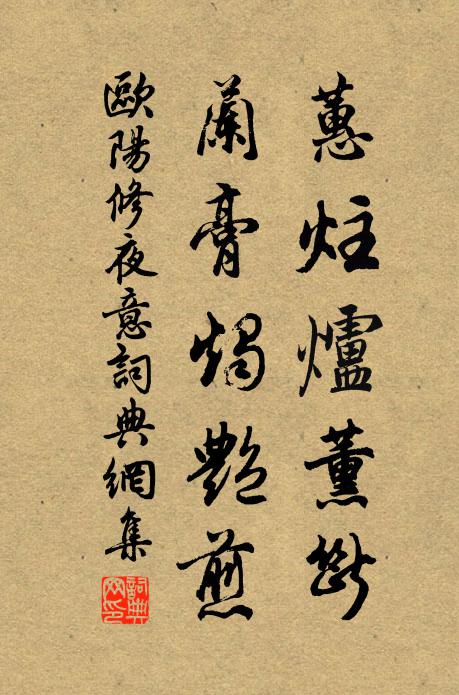 蕙炷爐薰斷
蘭膏燭艷煎
歐陽修夜意詞典網集
詞典網印